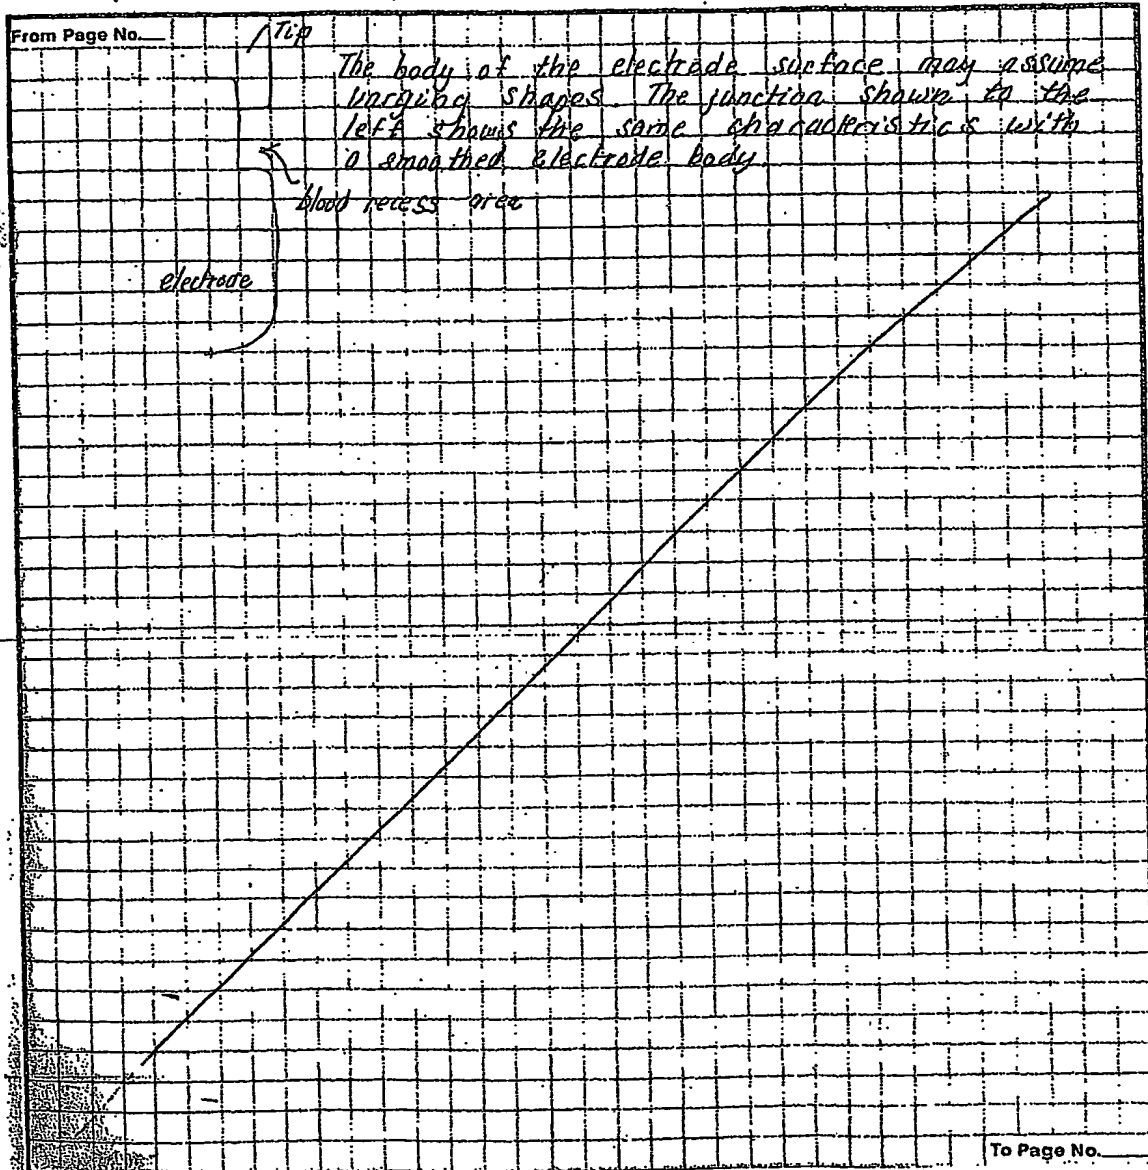 From Page No.
Tip
The body of the electrode surface may assume
varying shapes. The junction shown to the
left shows the same characteristics with
a smoothed electrode body.
blood recess area
electrode
To Page No.